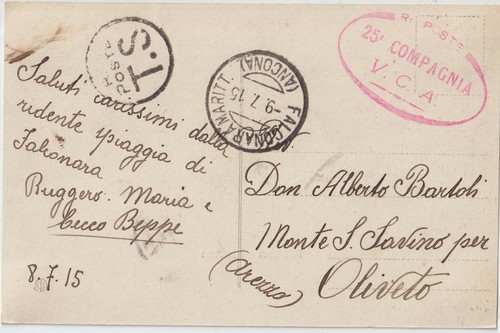 R. POSTE
25ª COMPAGNIA
V. C. A.
R. POSTE
S.T.
FALCONARA MARITT.
(ANCONA)
-9.7.15
Saluti carissimi dalla
ridente spiaggia di
Falconara
Ruggero. Maria e
Cecco Beppe
8.7.15
Don Alberto Bartoli
Monte S. Savino per
(Arezzo) Oliveto